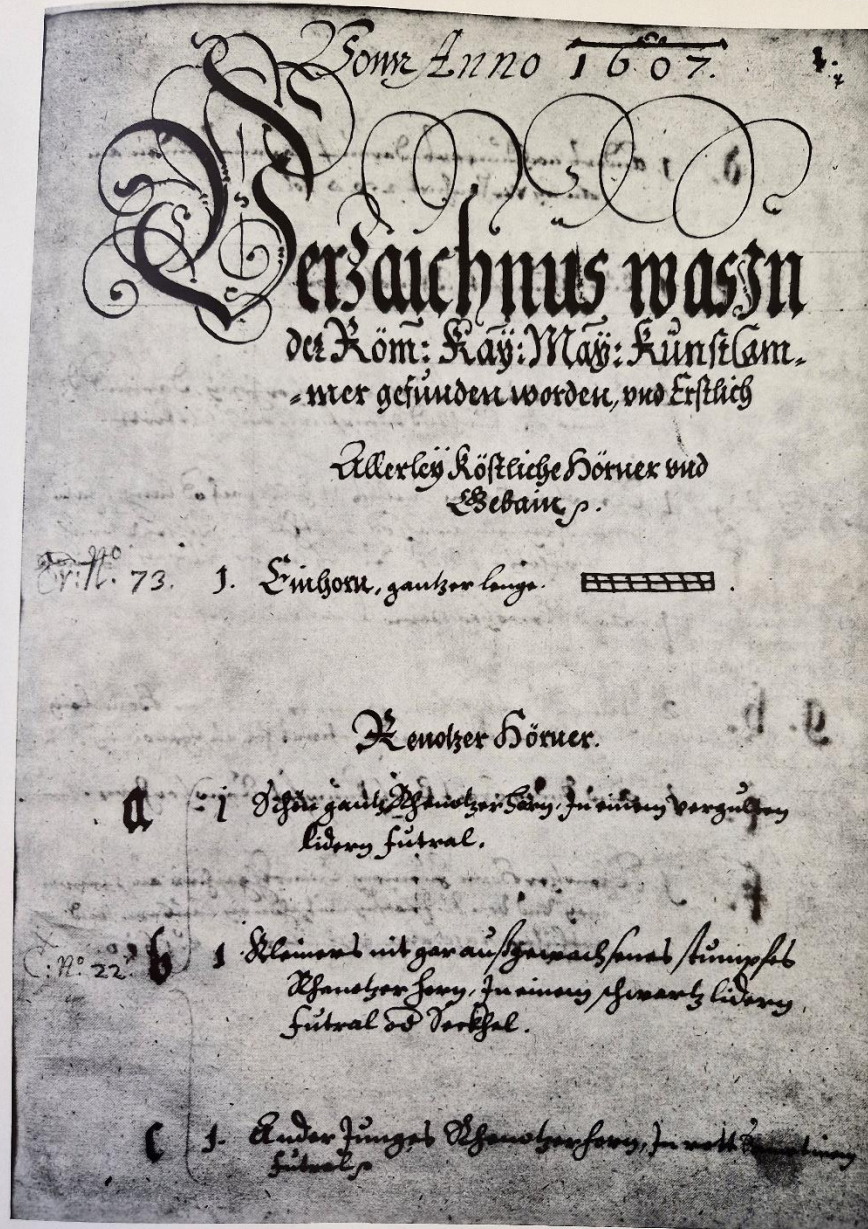 Vonn Anno 1607.
Verzaichnus was In
der Röm: Kay: May: Kunstcam-
-mer gefunden worden, vnd Erstlich
Allerley Köstliche Hörner vnd
Gebain
No. 73. 1. Einhorn, gantzer lenge.
Renotzer Hörner.
a 1 Schön gantz Rhenotzer horn, In einem vergulten
lidern futral.
: No. 22 b 1 Kleiners nit gar außgewachsenes stumpfes
Rhenotzer horn, In einem schwartz lidern
futral od Seckhel.
c 1. Ander Junges Rhenotzer horn, In rott
futral